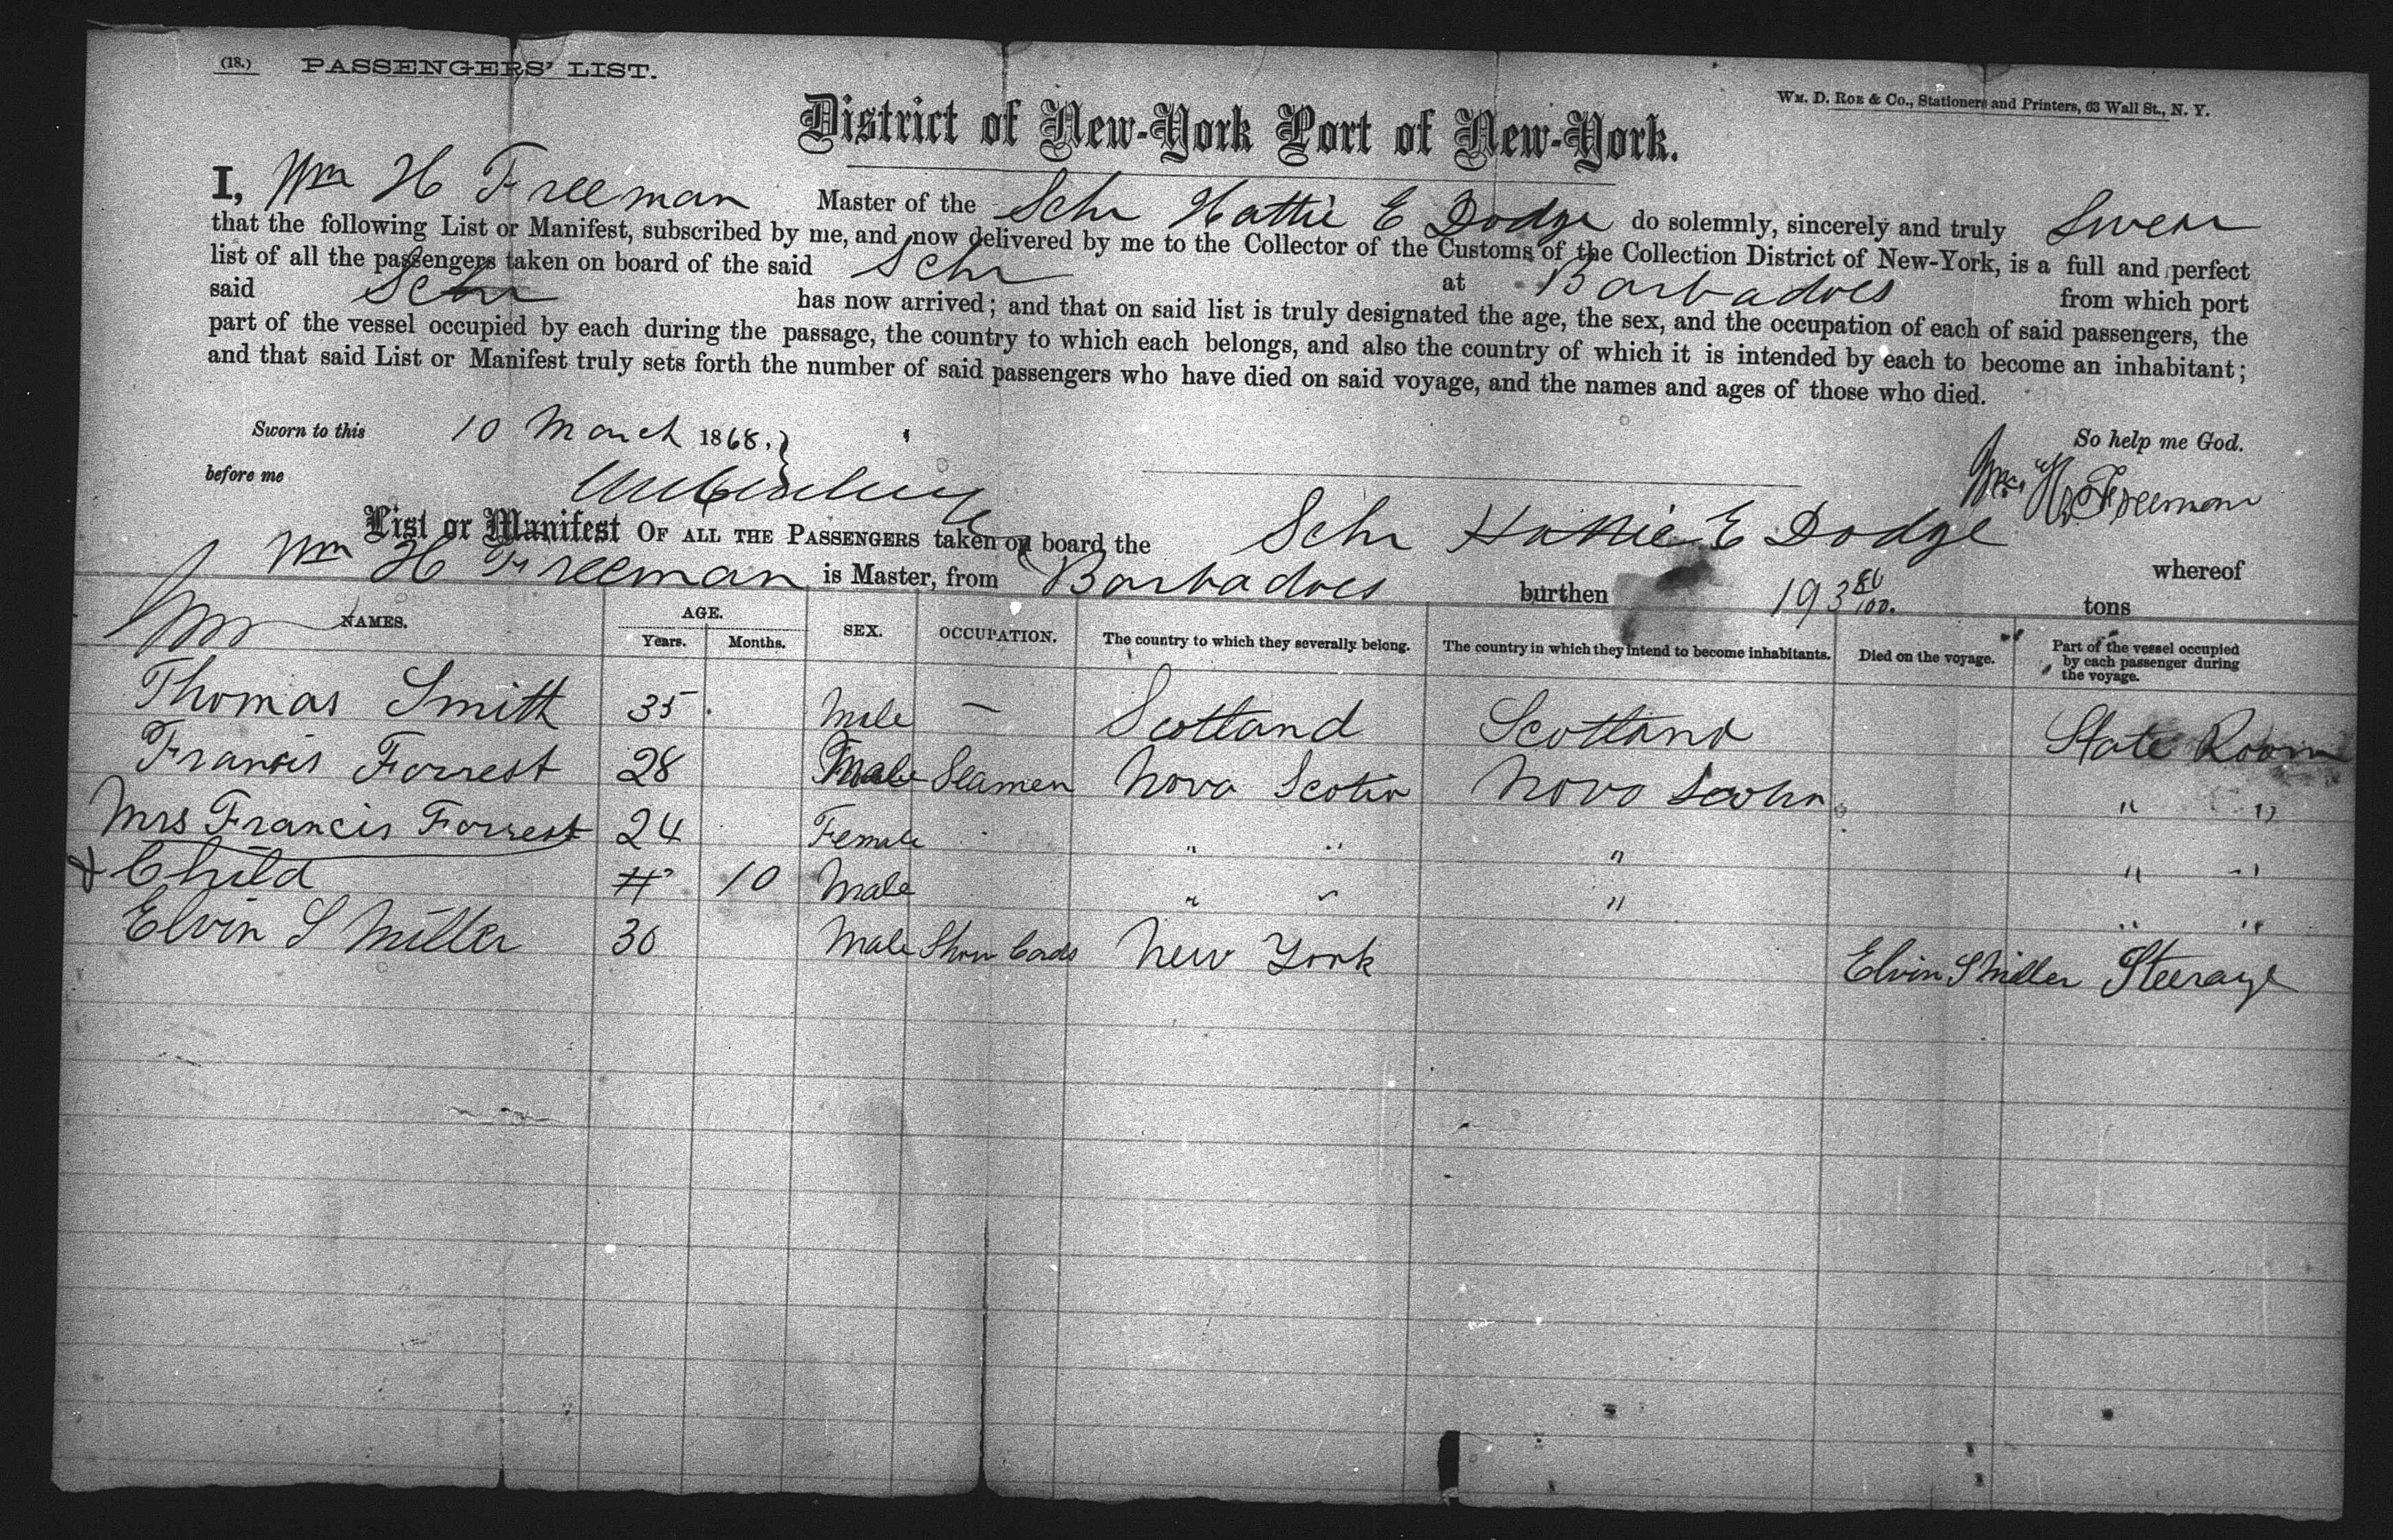 (18.) PASSENGERS' LIST.
Wm. D. Roe & Co., Stationers and Printers, 63 Wall St., N. Y.
District of New-York Port of New-York.
I, Wm H Freeman Master of the Schr Hattie E Dodge do solemnly, sincerely and truly Swear
that the following List or Manifest, subscribed by me, and now delivered by me to the Collector of the Customs of the Collection District of New-York, is a full and perfect
list of all the passengers taken on board of the said Schr at Barbadoes from which port
said Schr has now arrived; and that on said list is truly designated the age, the sex, and the occupation of each of said passengers, the
part of the vessel occupied by each during the passage, the country to which each belongs, and also the country of which it is intended by each to become an inhabitant;
and that said List or Manifest truly sets forth the number of said passengers who have died on said voyage, and the names and ages of those who died.
Sworn to this 10 March 1868. } So help me God.
before me Wm. H. Freeman
List or Manifest OF ALL THE PASSENGERS taken on board the Schr Hattie E Dodge whereof
Wm H Freeman is Master, from Barbadoes burthen 193 86/100. tons
NAMES. AGE. Years. Months. SEX. OCCUPATION. The country to which they severally belong. The country in which they intend to become inhabitants. Died on the voyage. Part of the vessel occupied by each passenger during the voyage.
Thomas Smith 35 Male — Scotland Scotland State Room
Francis Forrest 28 Male Seamen Nova Scotia Nova Scotia " "
Mrs Francis Forrest 24 Female " " " " "
& Child 10 Male " " " " "
Elvin S Miller 30 Male Show Cards New York Elvin S Miller Steerage